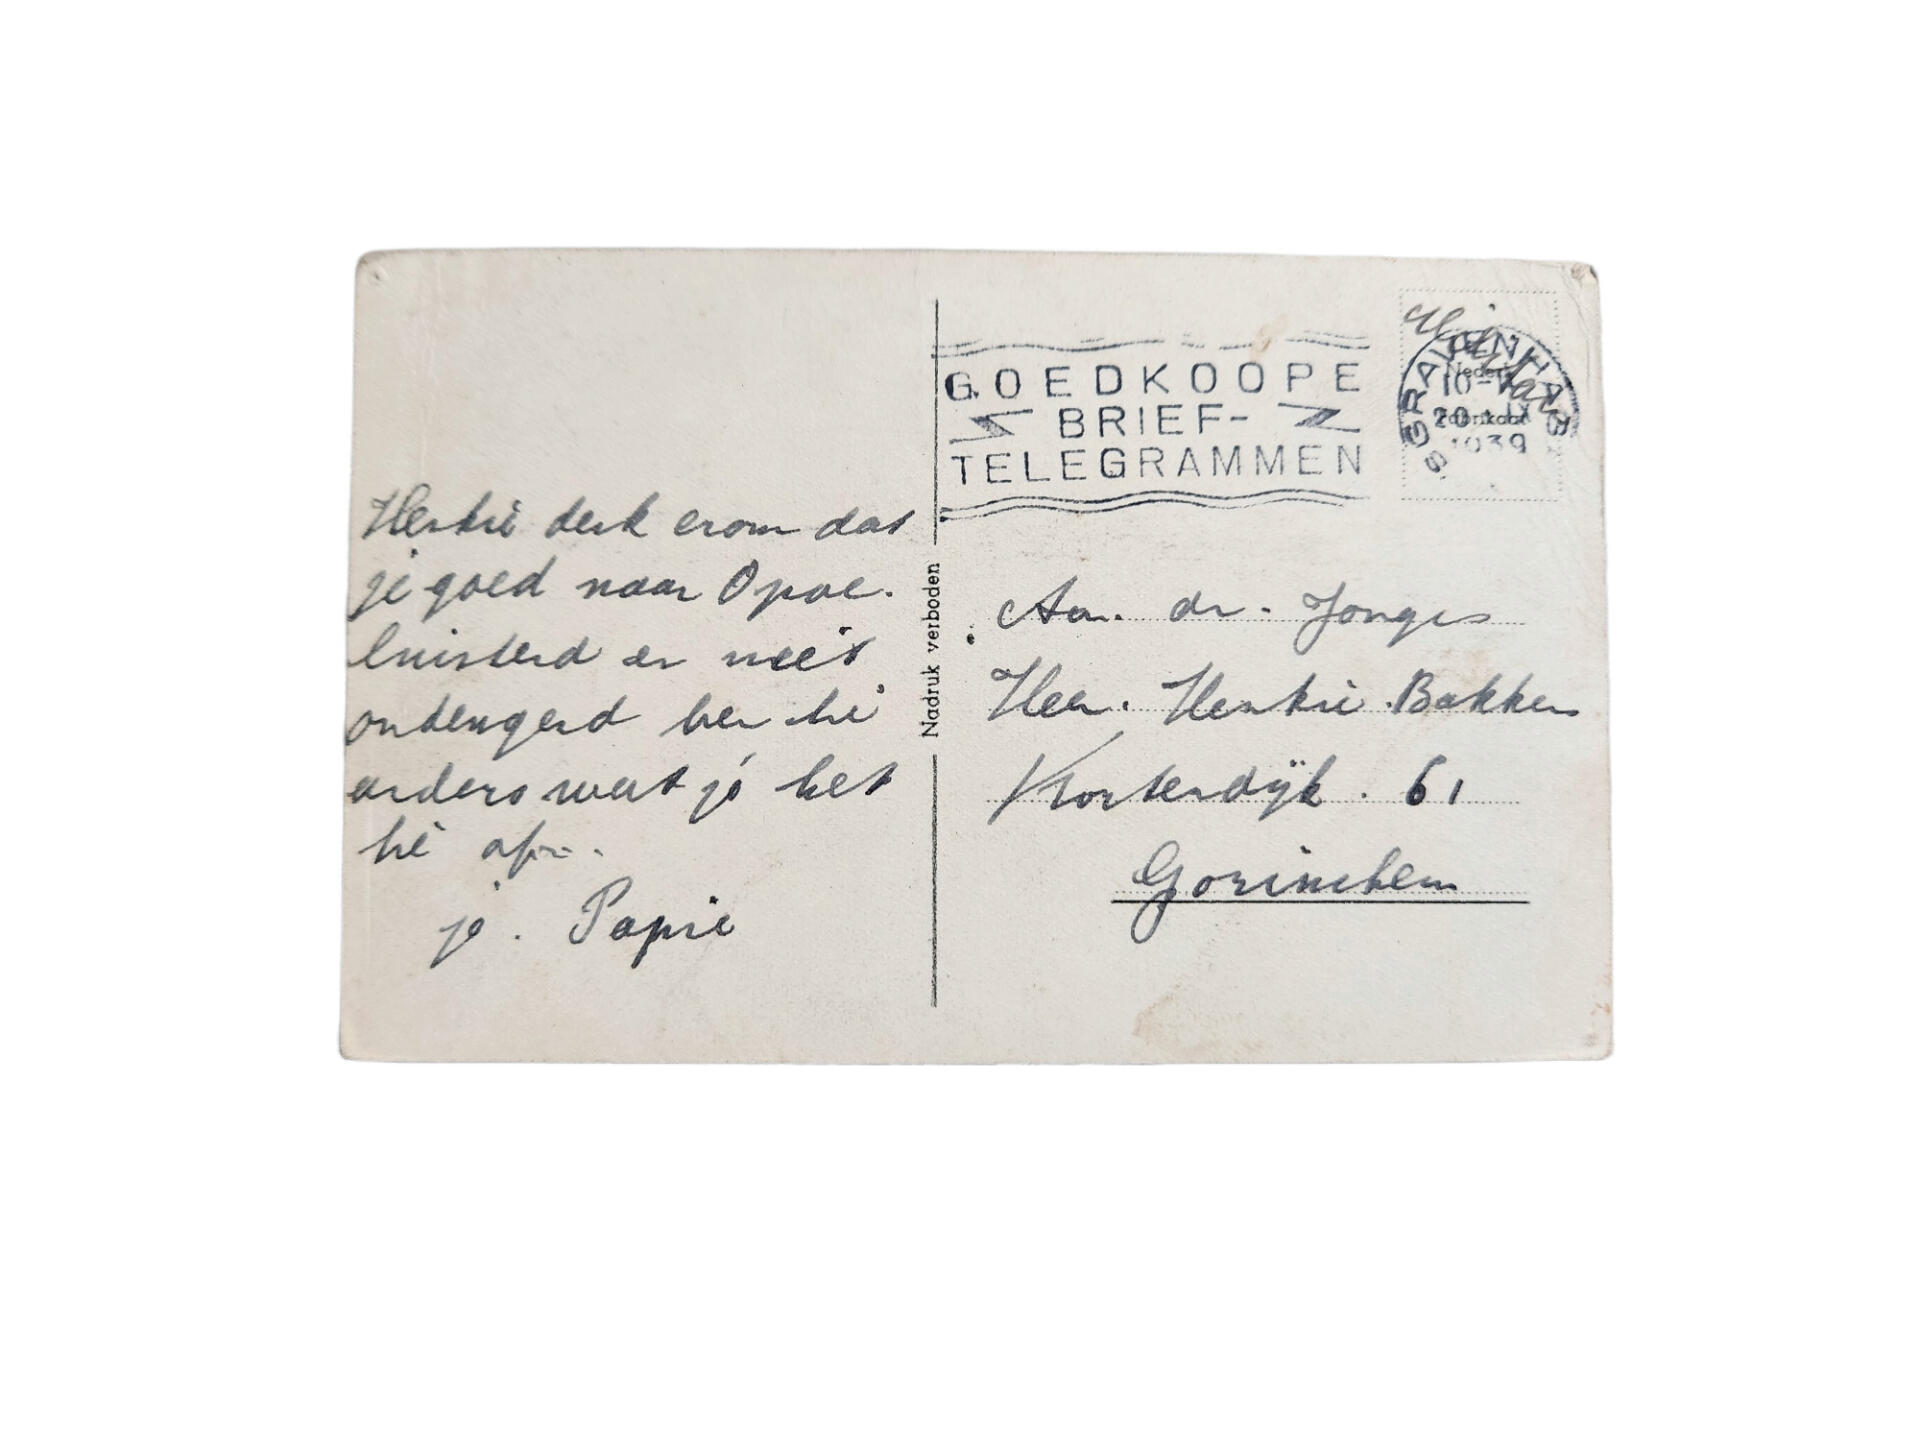 Henkie denk erom dat
je goed naar Opoe.
luisterd en niet
ondeugend ben hé
anders weet je het
hé
je. Papie
Nadruk verboden
GOEDKOOPE
BRIEF-
TELEGRAMMEN
Militair
S GRAVENHAGE
10-
20 IX
1939
Aan. de. Jonge
Heer. Henkie Bakker
Kortendijk. 61
Gorinchem